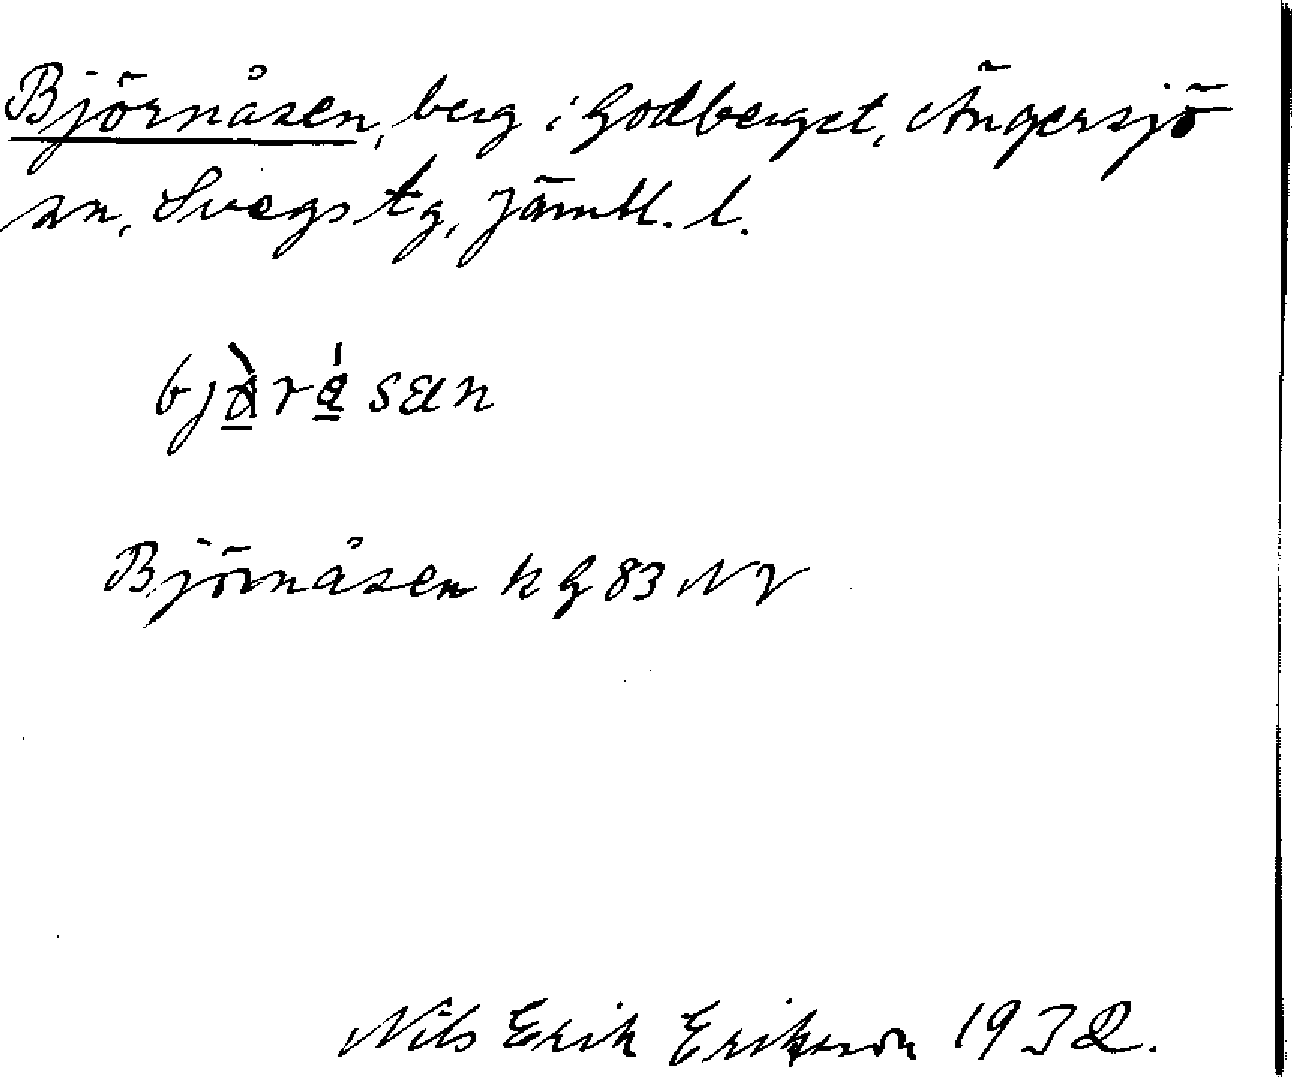 Björnåsen, berg i Godberget, Ängersjö
sn, Svegs tg, Jämtl. l.
Björnåsen k G 83 NV
Nils Erik Eriksson 1932.